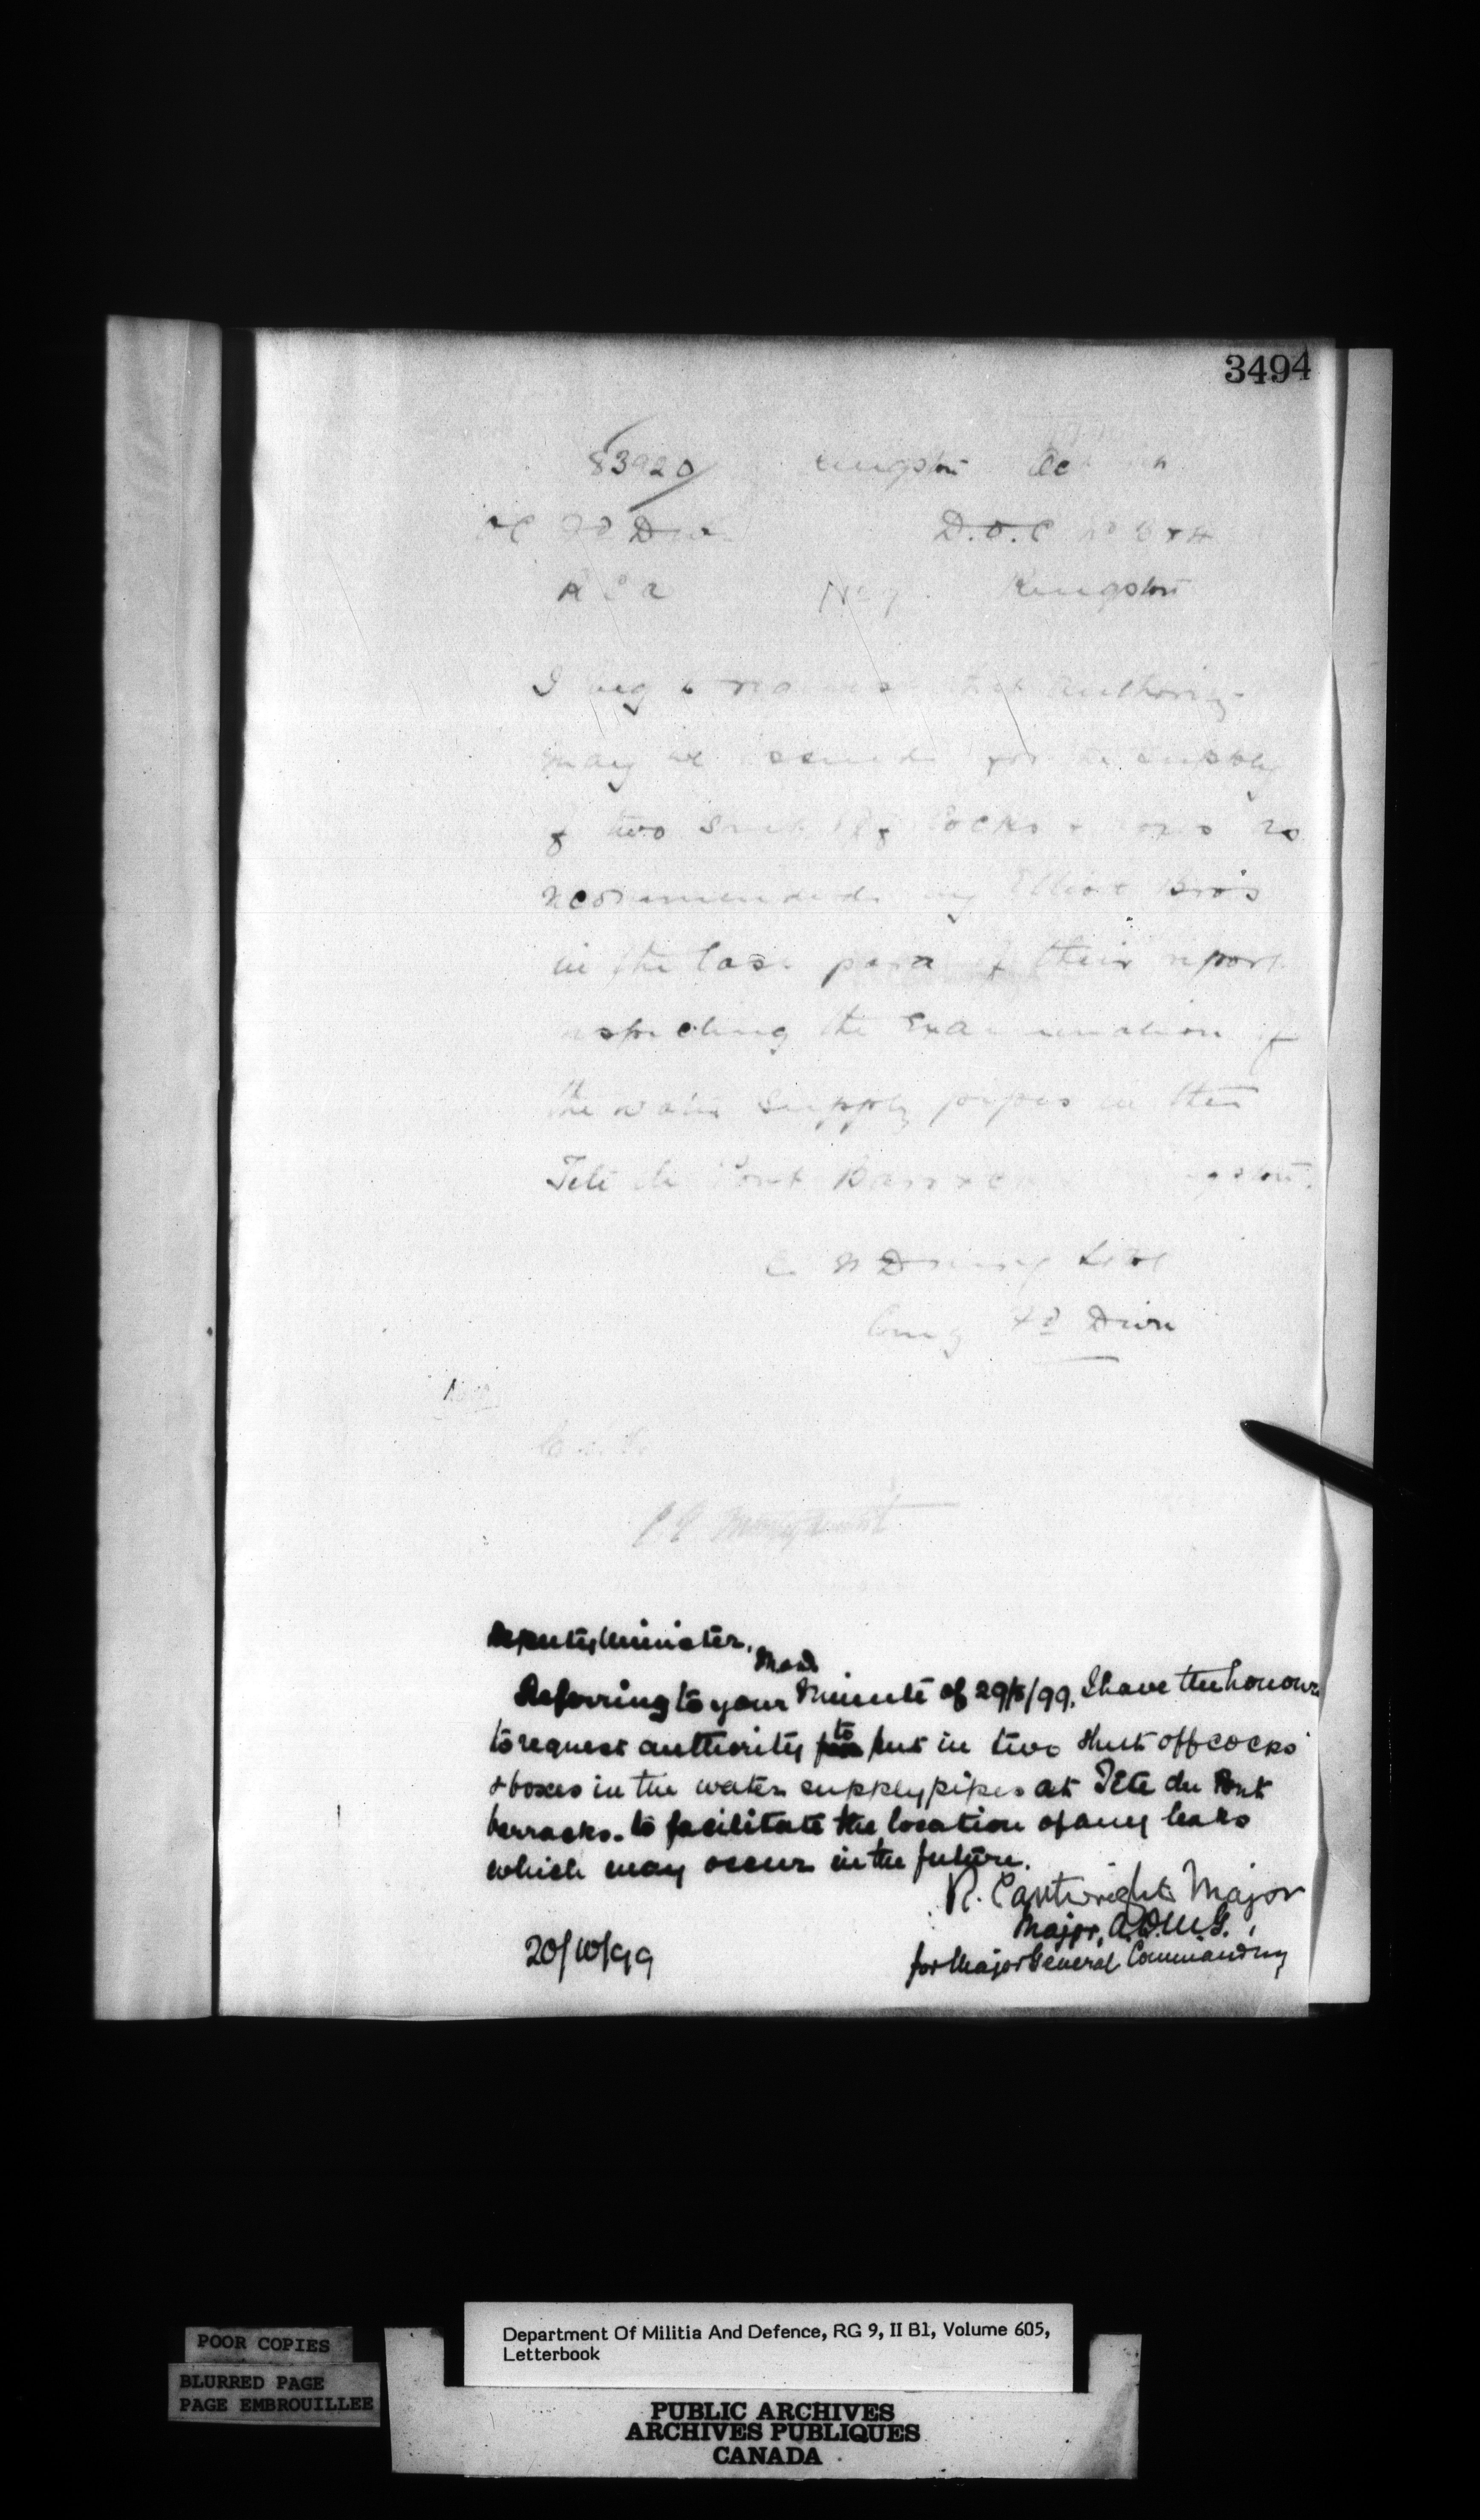 3494
83920 Kingston Oct
Fd Divn D.O.C No 3 & 4
R C A No Kingston
I beg to request that authority
may be issued for the supply
of two shut off cocks & boxes as
recommended by Elliott Bros
in the last para of their report
respecting the Examination of
the water supply pipes in the
Tete de Pont Barracks
Lt Col
Comg Fd Divn
Deputy Minister,
Referring to your Minute of 29/8/99, I have the honour
to request authority to put in two shut off cocks
& boxes in the water supply pipes at Tête du Pont
barracks. to facilitate the location of any leaks
which may occur in the future.
R. Cartwright Major
Major, A.D.M.G.,
for Major General Commanding
20/10/99
Department Of Militia And Defence, RG 9, II B1, Volume 605,
Letterbook
POOR COPIES
BLURRED PAGE
PAGE EMBROUILLEE
PUBLIC ARCHIVES
ARCHIVES PUBLIQUES
CANADA